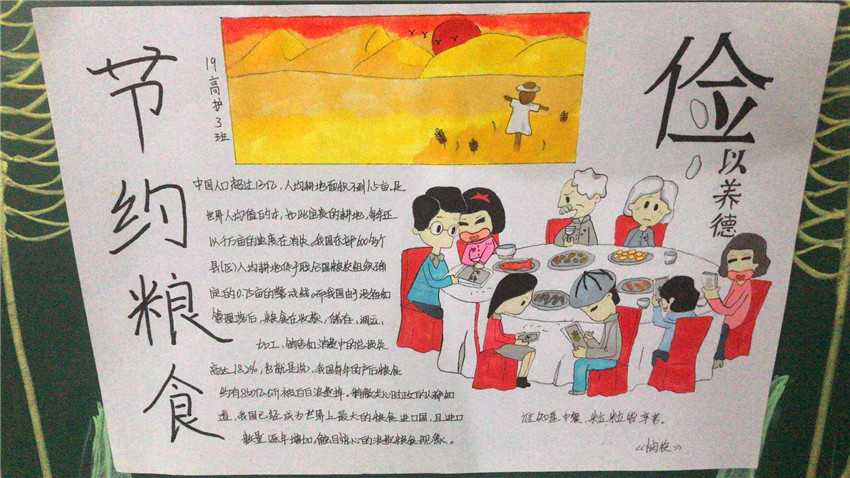 节约粮食
19高护3班
俭
以养德
中国人口超过13亿,人均耕地面积不到1.5亩,是
世界人均值的
以 万亩的速度在消失,我国东部600多个
县(区)人均耕地低于联合国粮农组织确
定的0.75亩的警戒线。而我国由于没有如
管理落后,粮食在收获、储存、调运、
加工、销售和消费中的总损失
高达18.2%,也就是说,我国每年因产后粮食
约有850亿斤被白白浪费掉。稍微关心时政的人都知
道,我国已经成为世界上最大的粮食进口国,且进口
数量逐年增加,触目惊心的浪费粮食现象。
谁知盘中餐,粒粒皆辛苦。
《悯农》